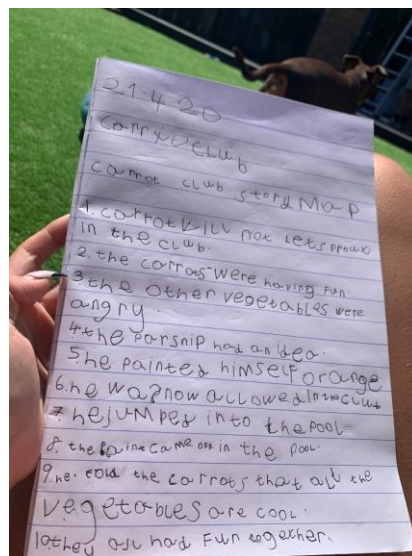 21.4.20
carrot club
carrot club story Map
1. carrot will not lets
in the club.
2. the carrots were having fun
3. the other vegetables were
angry.
4. the parsnip had an idea.
5. he painted himself orange
6. he was now allowed in the club
7. he jumped into the pool
8. the paint came off in the pool.
9. he told the carrots that all the
vegetables are cool.
10 they all had fun together.